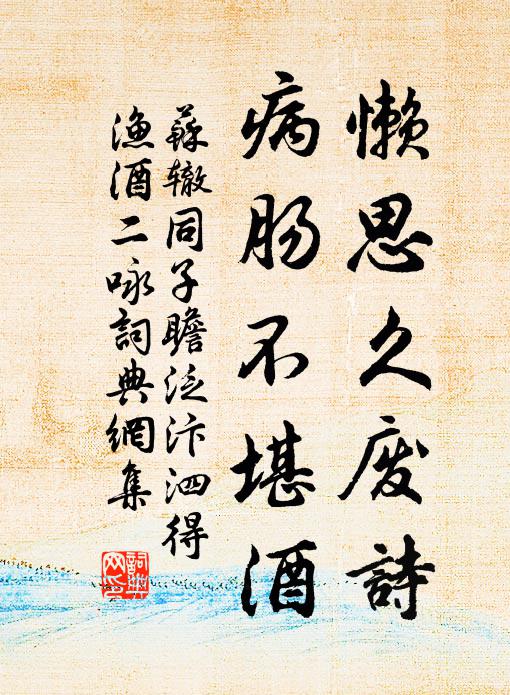 懒思久废詩
病肠不堪酒
蘇辙同子瞻泛汴泗得
漁酒二咏詞典網集